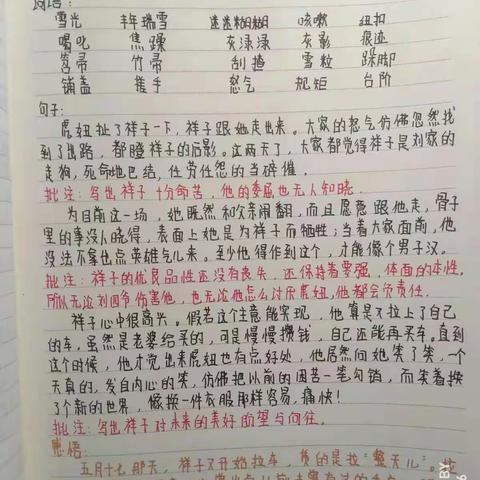 词语:
雪光 丰年瑞雪 迷迷糊糊 咳嗽 纽扣
喝叱 焦躁 灰渌渌 灰影 痕迹
笤帚 竹帚 刮搂 雪粒 跺脚
铺盖 搓手 怒气 规矩 台阶
句子:
虎妞扯了祥子一下,祥子跟她走出来。大家的怒气仿佛忽然找
到了出路,都瞪着祥子的后影。这两天了,大家都觉得祥子是刘家的
走狗,死命地巴结,任劳任怨的当碎催,
批注:写出祥子十分命苦,他的委屈也无人知晓.
为目前这一场,她既然和父亲闹翻,而且愿意跟他走,骨子
里的事没人晓得,表面上她是为祥子而牺牲;当着大家面前,他
没法不拿出点英雄气儿来。至少他得作到这个,才能像个男子汉。
批注:祥子的优良品性还没有丧失,还保持着要强、体面的本性,
所以无论刘四爷伤害他,也无论他怎么讨厌虎妞,他都会负责任.
祥子心中很高兴。假若这个主意能实现,他算是又拉上了自己
的车,虽然是老婆给买的,可是慢慢攒钱,自己还能再买车。直到
这个时候,他才觉出来虎妞也有点好处,他居然向她笑了笑,一个
天真的,发自内心的笑,仿佛把以前的困苦一笔勾销,而笑着换
了个新的世界,像换一件衣服那样容易,痛快!
批注:写出祥子对未来的美好盼望与向往。
感悟:
五月十七那天,祥子又开始拉车,赁的是拉"整天儿"。拉